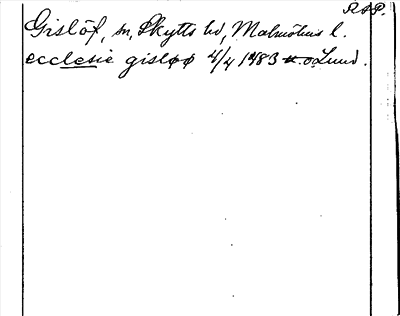 RAP.
Gislöf, sn, Skytts hd, Malmöhus l.
ecclesie gisløø 4/4 1483 u.o. Lund.